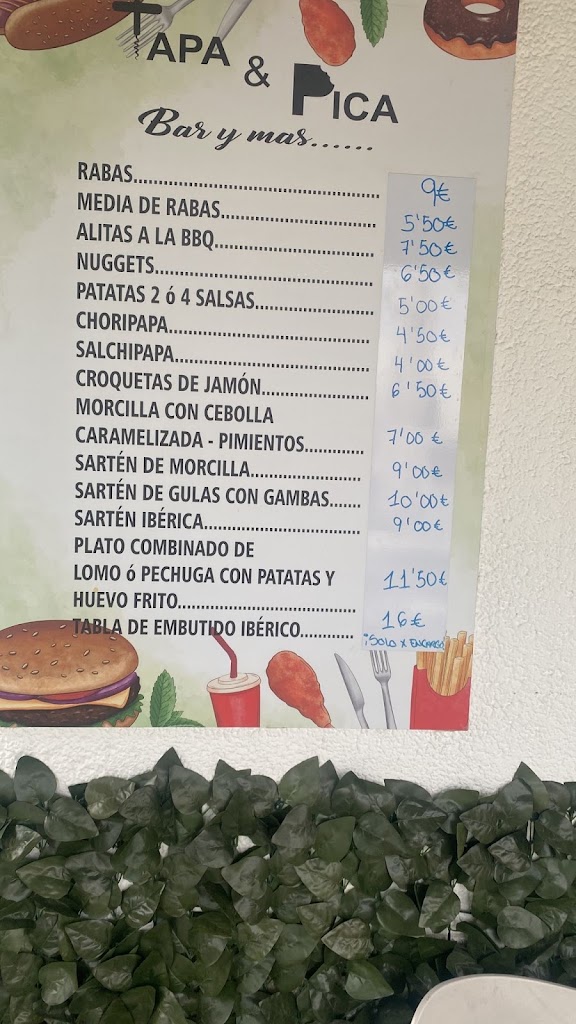 TAPA & PICA
Bar y mas......
RABAS.......... 9€
MEDIA DE RABAS.......... 5'50€
ALITAS A LA BBQ.......... 7'50€
NUGGETS.......... 6'50€
PATATAS 2 ó 4 SALSAS.......... 5'00€
CHORIPAPA.......... 4'50€
SALCHIPAPA.......... 4'00€
CROQUETAS DE JAMÓN.......... 6'50€
MORCILLA CON CEBOLLA
CARAMELIZADA - PIMIENTOS.......... 7'00€
SARTÉN DE MORCILLA.......... 9'00€
SARTÉN DE GULAS CON GAMBAS....... 10'00€
SARTÉN IBÉRICA.......... 9'00€
PLATO COMBINADO DE
LOMO ó PECHUGA CON PATATAS Y 11'50€
HUEVO FRITO..........
TABLA DE EMBUTIDO IBÉRICO.......... 16€
¡SOLO X ENCARGO